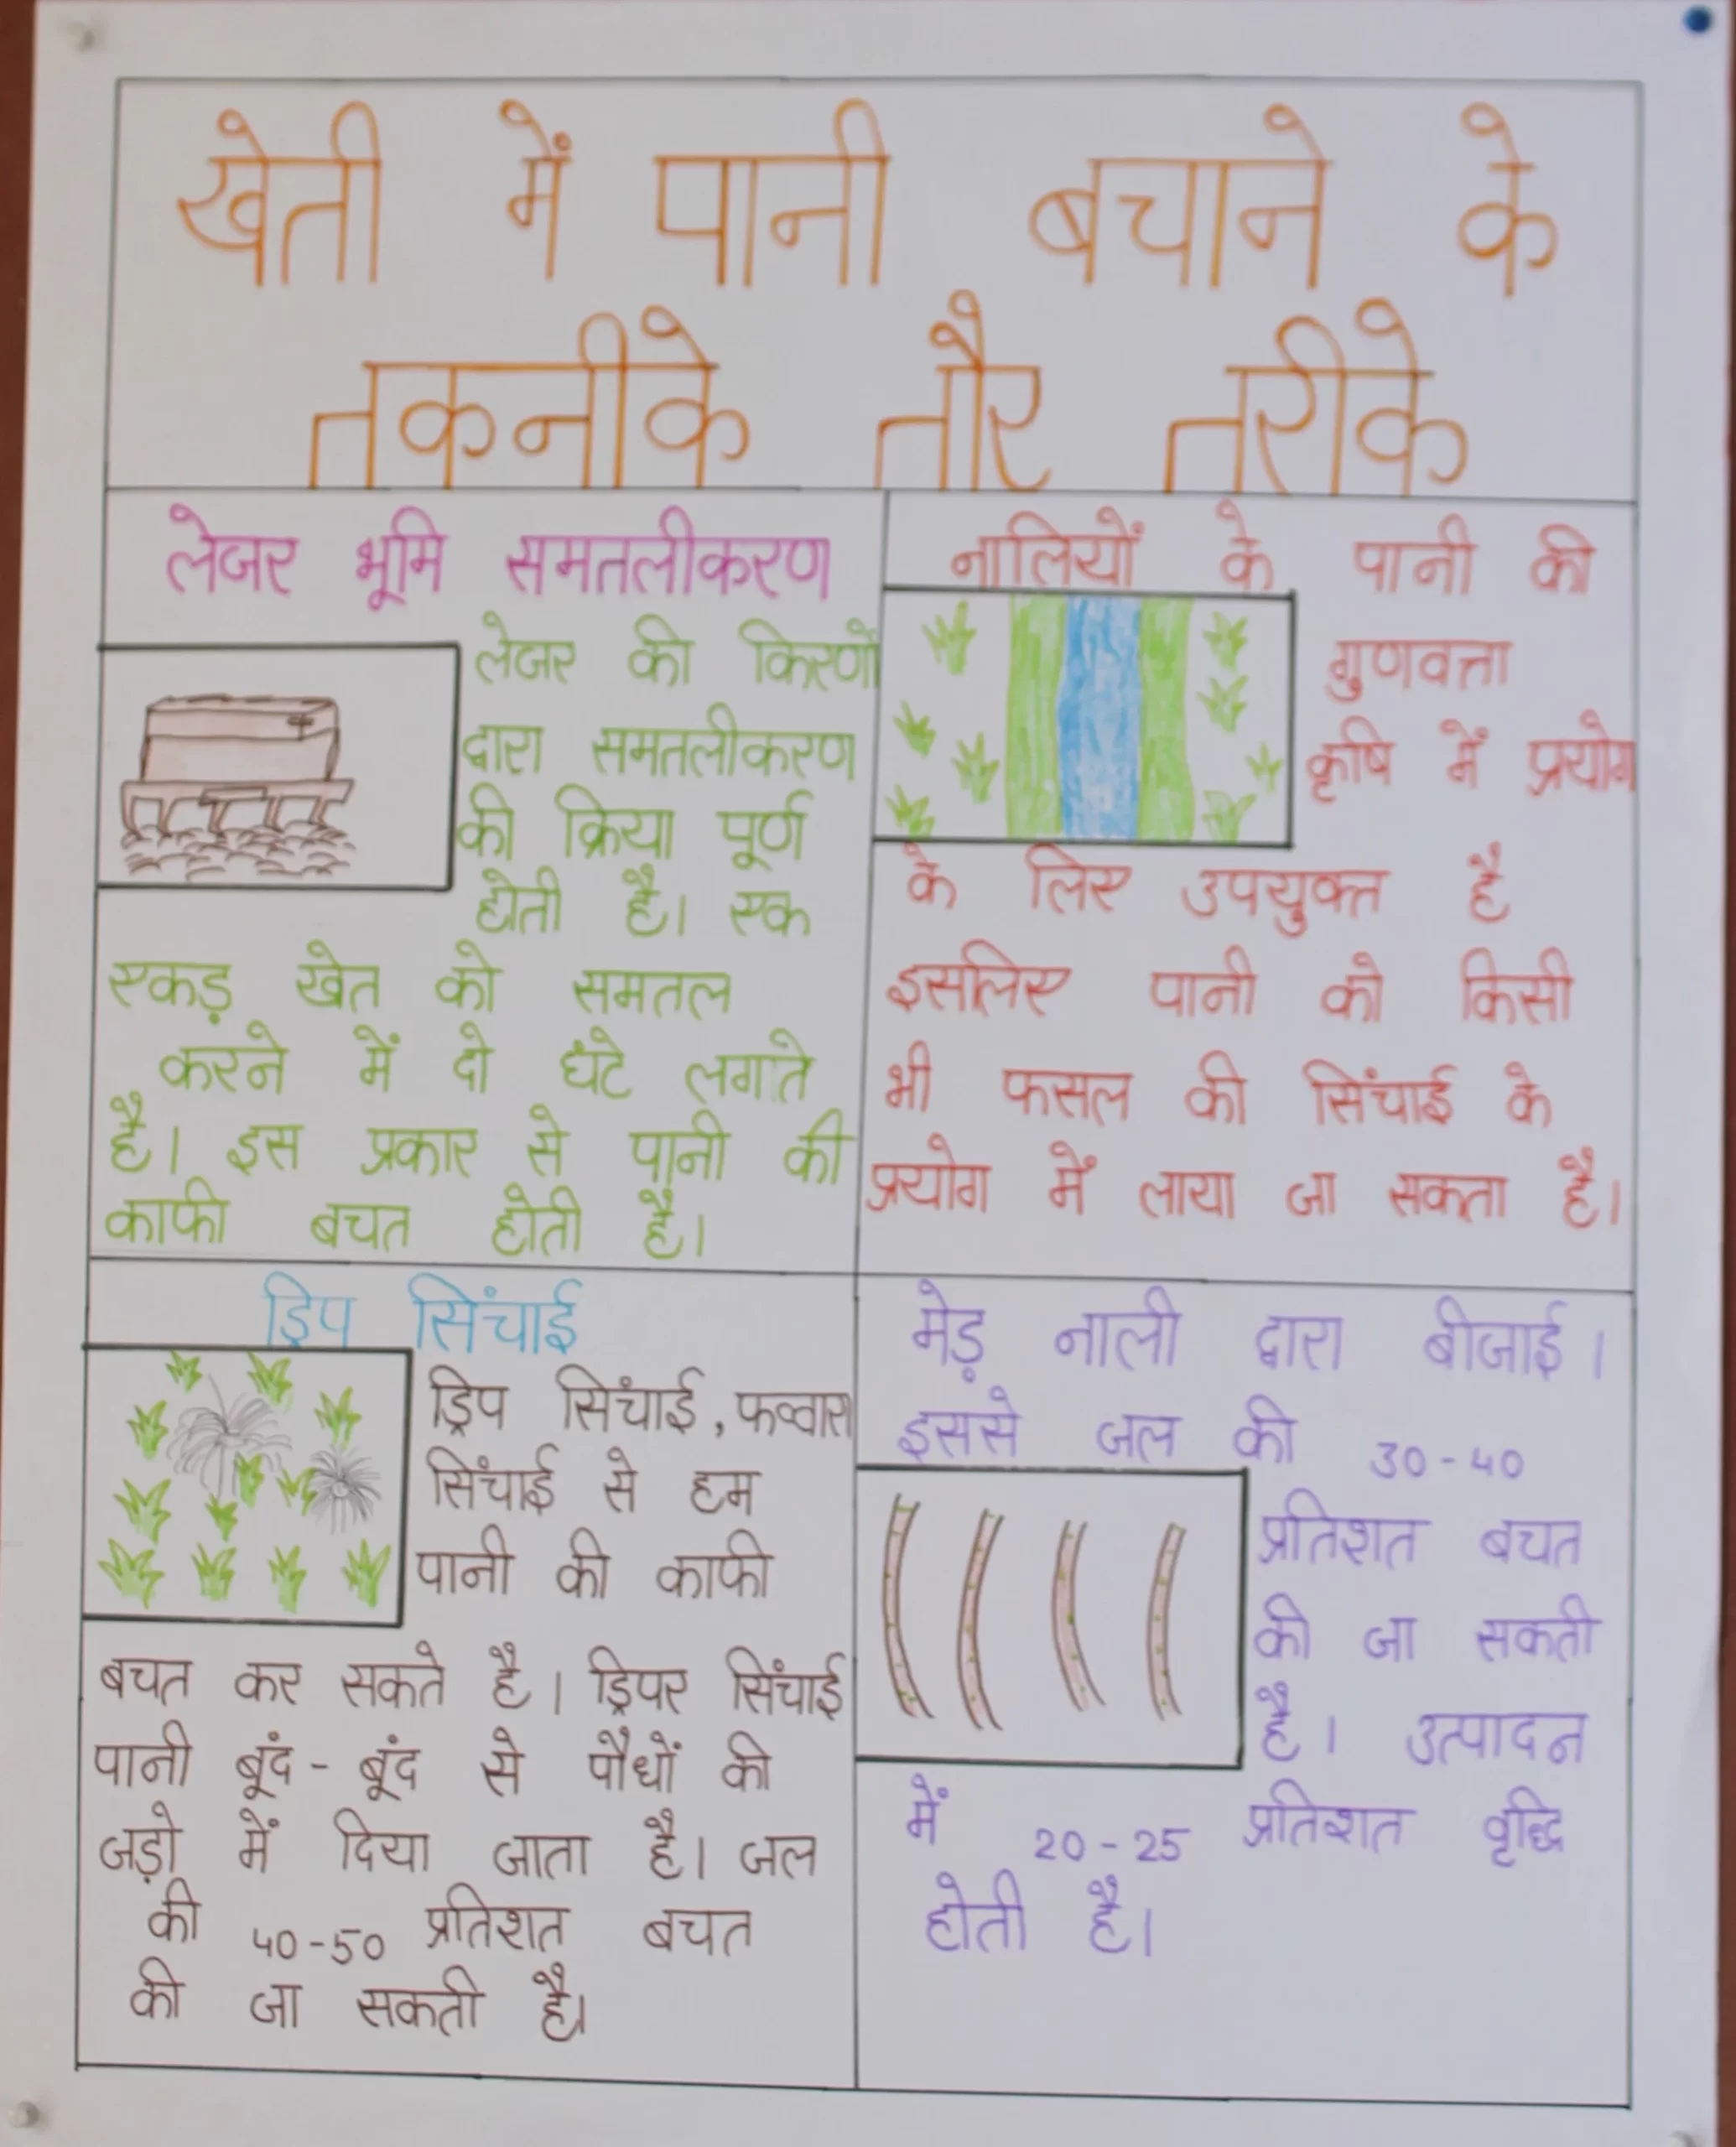 खेती में पानी बचाने के
तकनीके तौर तरीके
लेजर भूमि समतलीकरण
लेजर की किरणों
द्वारा समतलीकरण
की क्रिया पूर्ण
होती है। एक
एकड़ खेत को समतल
करने में दो घंटे लगते
है। इस प्रकार से पानी की
काफी बचत होती है।
नालियों के पानी की
गुणवत्ता
कृषि में प्रयोग
के लिए उपयुक्त है
इसलिए पानी को किसी
भी फसल की सिंचाई के
प्रयोग में लाया जा सकता है।
ड्रिप सिंचाई
ड्रिप सिंचाई, फव्वारा
सिंचाई से हम
पानी की काफी
बचत कर सकते है। ड्रिपर सिंचाई
पानी बूंद - बूंद से पौधों की
जड़ो में दिया जाता है। जल
की 40-50 प्रतिशत बचत
की जा सकती है।
मेड़ नाली द्वारा बीजाई।
इससे जल की 30-40
प्रतिशत बचत
की जा सकती
है। उत्पादन
में 20-25 प्रतिशत वृद्धि
होती है।